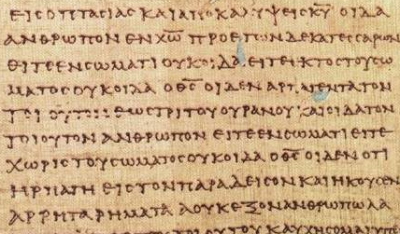 ΕΙϹΟΠΤΑϹΙΑϹΚΑΙΑΠΟΚΑΛΥΨΕΙϹΚ̅Υ̅ΟΙΔΑ
ΑΝΘΡΩΠΟΝΕΝΧ̅Ω̅ΠΡΟΕΤΩΝΔΕΚΑΤΕϹϹΑΡΩΝ
ΕΙΤΕΕΝϹΩΜΑΤΙΟΥΚΟΙΔΑΕΙΤΕΕΚΤΟϹΤΟΥϹΩ
ΜΑΤΟϹΟΥΚΟΙΔΑΟΘ̅Ϲ̅ΟΙΔΕΝΑΡΠΑΓΕΝΤΑΤΟΝ
ΤΟΙΟΥΤΟΝΕΩϹΤΡΙΤΟΥΟΥΡΑΝΟΥΚΑΙΟΙΔΑΤΟΝ
ΤΟΙΟΥΤΟΝΑΝΘΡΩΠΟΝΕΙΤΕΕΝϹΩΜΑΤΙΕΙΤΕ
ΧΩΡΙϹΤΟΥϹΩΜΑΤΟϹΟΥΚΟΙΔΑΟΘ̅Ϲ̅ΟΙΔΕΝΟΤΙ
ΗΡΠΑΓΗΕΙϹΤΟΝΠΑΡΑΔΕΙϹΟΝΚΑΙΗΚΟΥϹΕΝ
ΑΡΡΗΤΑΡΗΜΑΤΑΑΟΥΚΕΞΟΝΑΝΘΡΩΠΩΛΑ
ΤΟΙΟΥΤΟΥΚΑΥΧΗϹΟΜΑΙΥΠΕ